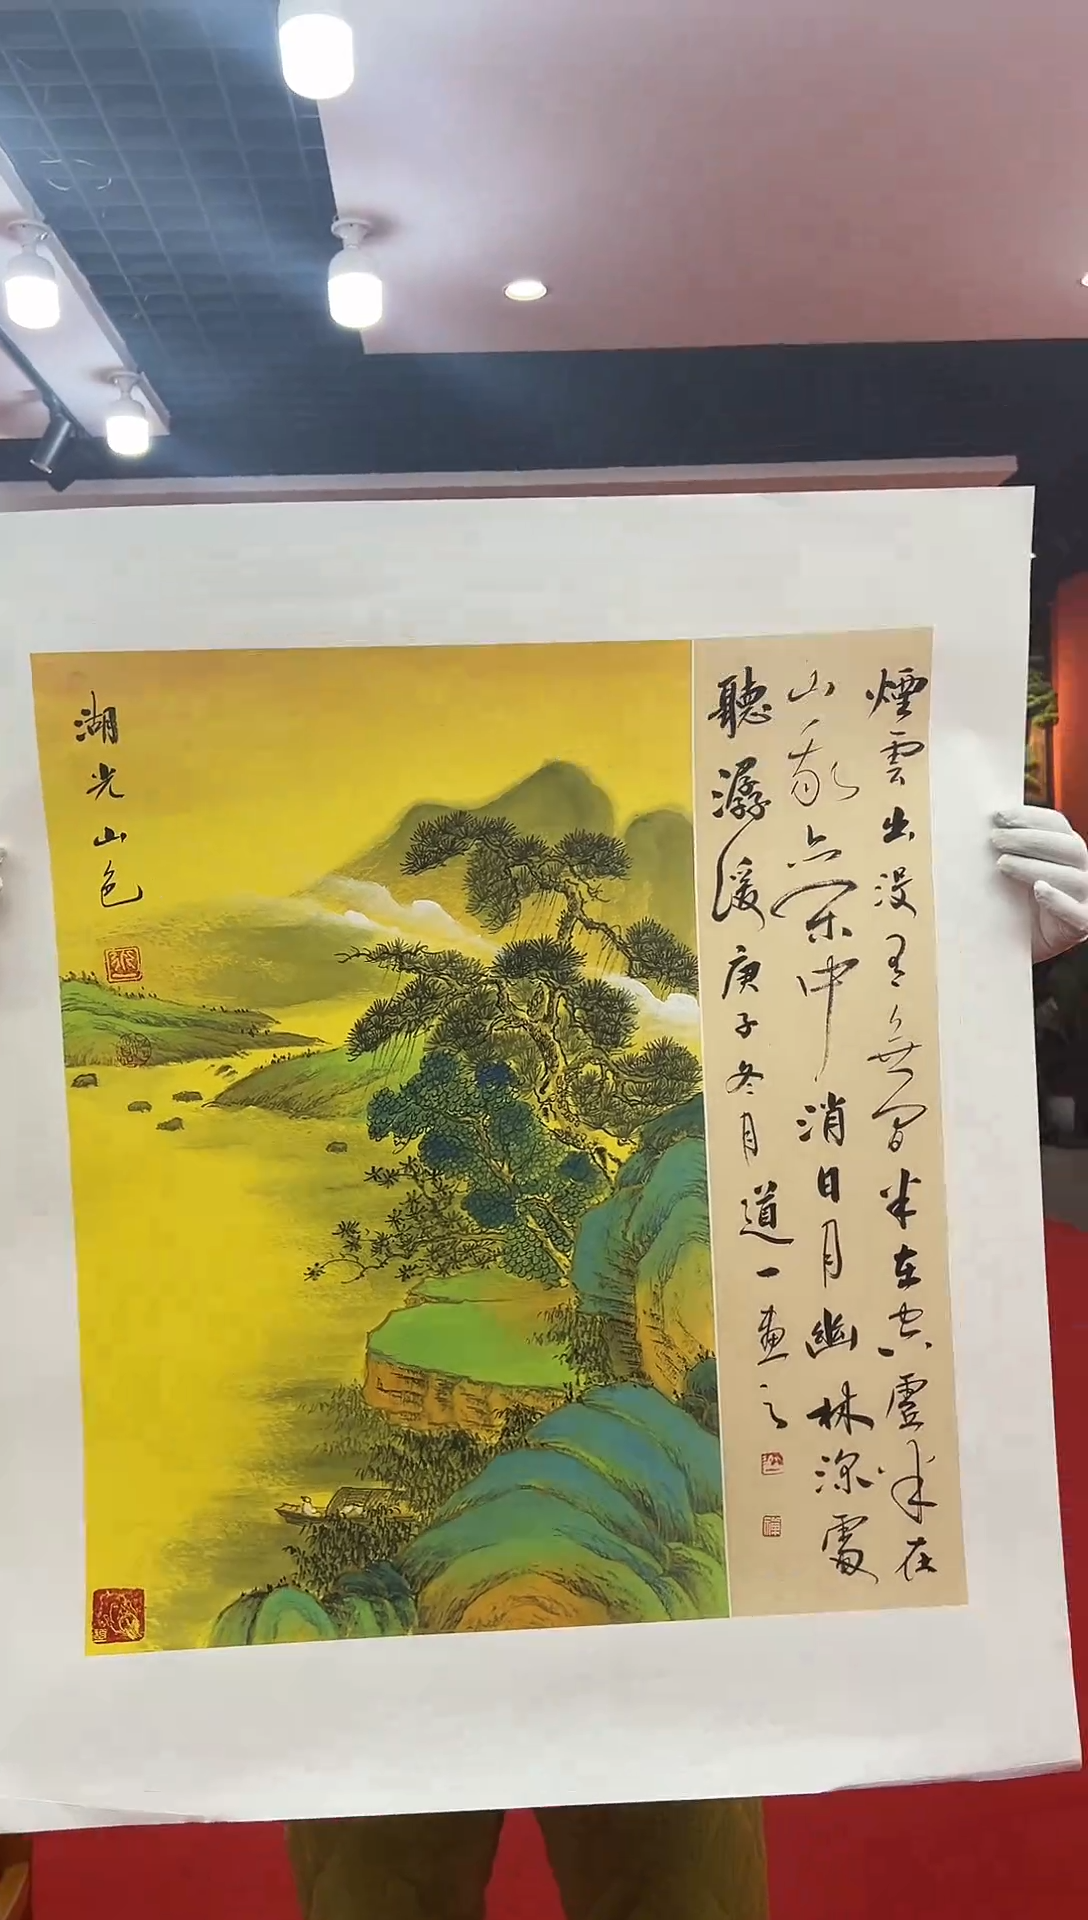 煙雲出没有無間半在空虛半在
山我亦閑中消日月幽林深處
聽潺湲庚子冬月道一畫之
湖光山色